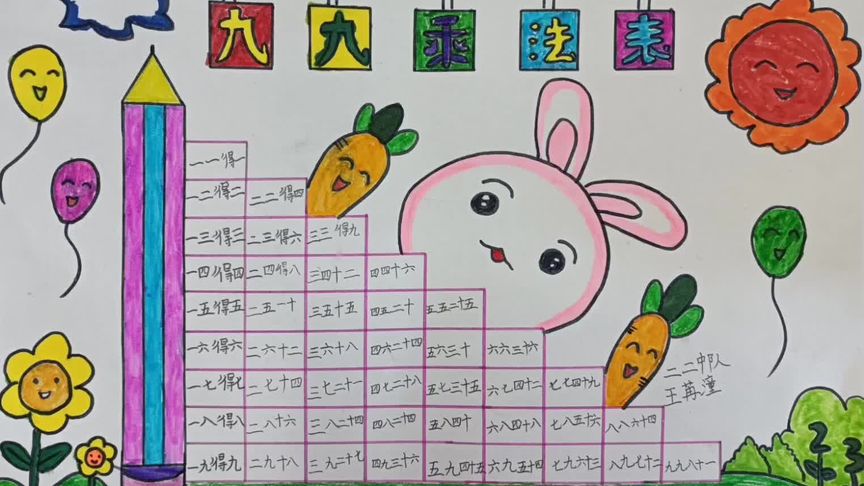 九九乘法表
一一得一
一二得二 二二得四
一三得三 二三得六 三三得九
一四得四 二四得八 三四十二 四四十六
一五得五 二五一十 三五十五 四五二十 五五二十五
一六得六 二六十二 三六十八 四六二十四 五六三十 六六三十六
一七得七 二七十四 三七二十一 四七二十八 五七三十五 六七四十二 七七四十九
一八得八 二八十六 三八二十四 四八二十四 五八四十 六八四十八 七八五十六 八八六十四
一九得九 二九十八 三九二十七 四九三十六 五九四十五 六九五十四 七九六十三 八九七十二 九九八十一
二二中队
王苒潼